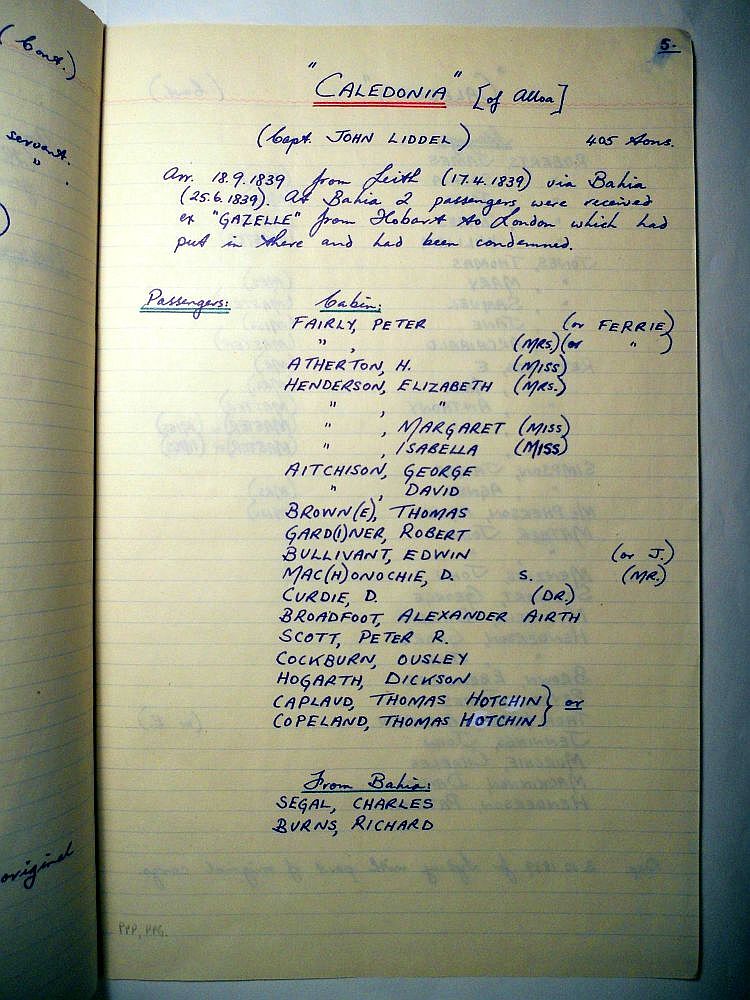 (Cont.)
servant.
" .
)
original
5.
"CALEDONIA" [of Alloa]
(Capt. JOHN LIDDEL) 405 tons.
Arr. 18.9.1839 from Leith (17.4.1839) via Bahia
(25.6.1839). At Bahia 2 passengers were received
ex "GAZELLE" from Hobart to London which had
put in there and had been condemned.
Passengers: Cabin:
FAIRLY, PETER (or FERRIE)
" , (MRS.) (or " )
ATHERTON, H. (MISS)
HENDERSON, ELIZABETH (MRS.)
" , "
" , MARGARET (MISS)
" , ISABELLA (MISS)
AITCHISON, GEORGE
" , DAVID
BROWN(E), THOMAS
GARD(I)NER, ROBERT
BULLIVANT, EDWIN (or J.)
MAC(H)ONOCHIE, D. S. (MR.)
CURDIE, D. (DR.)
BROADFOOT, ALEXANDER AIRTH
SCOTT, PETER R.
COCKBURN, OUSLEY
HOGARTH, DICKSON
CAPLAUD, THOMAS HOTCHIN } or
COPELAND, THOMAS HOTCHIN }
From Bahia:
SEGAL, CHARLES
BURNS, RICHARD
PPP, PPG.